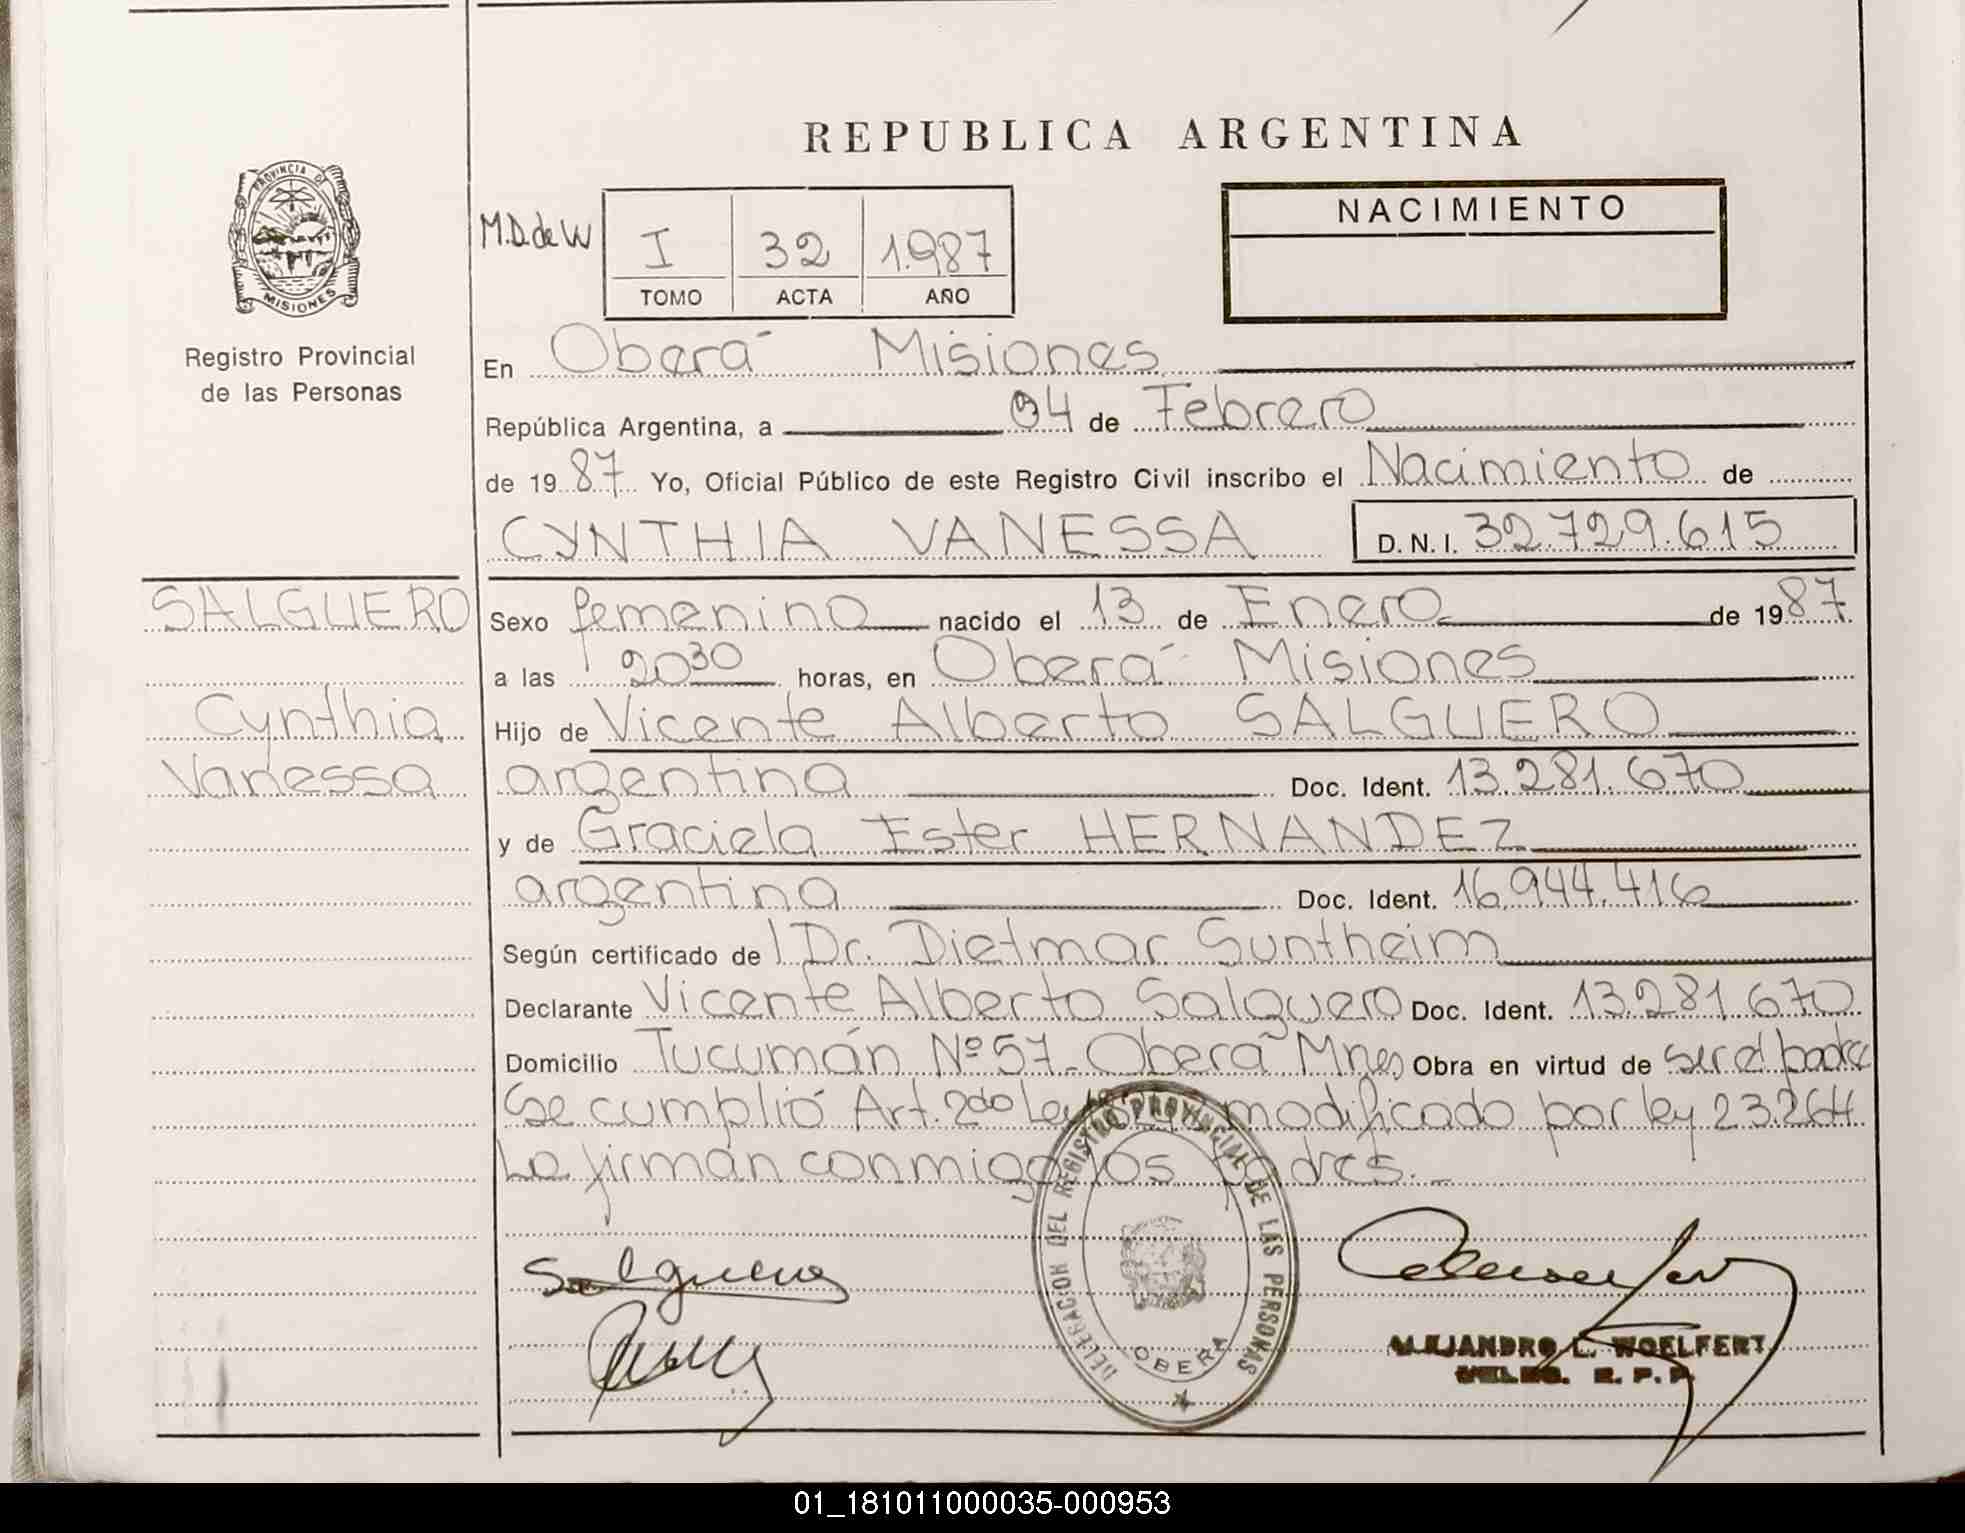 REPUBLICA ARGENTINA
PROVINCIA D
MISIONES
Registro Provincial
de las Personas
M.D. de W
I 32 1.987
TOMO ACTA AÑO
NACIMIENTO
En Oberá Misiones
República Argentina, a 04 de Febrero
de 1987 Yo, Oficial Público de este Registro Civil inscribo el Nacimiento de
CYNTHIA VANESSA D.N.I. 32.729.615
SALGUERO
Cynthia
Vanessa
Sexo femenino nacido el 13 de Enero de 1987
a las 20 30 horas, en Oberá Misiones
Hijo de Vicente Alberto SALGUERO
argentina Doc. Ident. 13.281.670
y de Graciela Ester HERNANDEZ
argentina Doc. Ident. 16.944.416
Según certificado de l Dr. Dietmar Suntheim
Declarante Vicente Alberto Salguero Doc. Ident. 13.281.670
Domicilio Tucumán Nº 57 - Oberá Mnes Obra en virtud de ser el padre
Se cumplió Art. 2do Ley modificado por ley 23.264.
La firman conmigo los Padres. -
Salguero
DELEGACION DEL REGISTRO PROVINCIAL DE LAS PERSONAS
OBERA
ALEJANDRO L. WOELFERT
R. P. P.
01_181011000035-000953